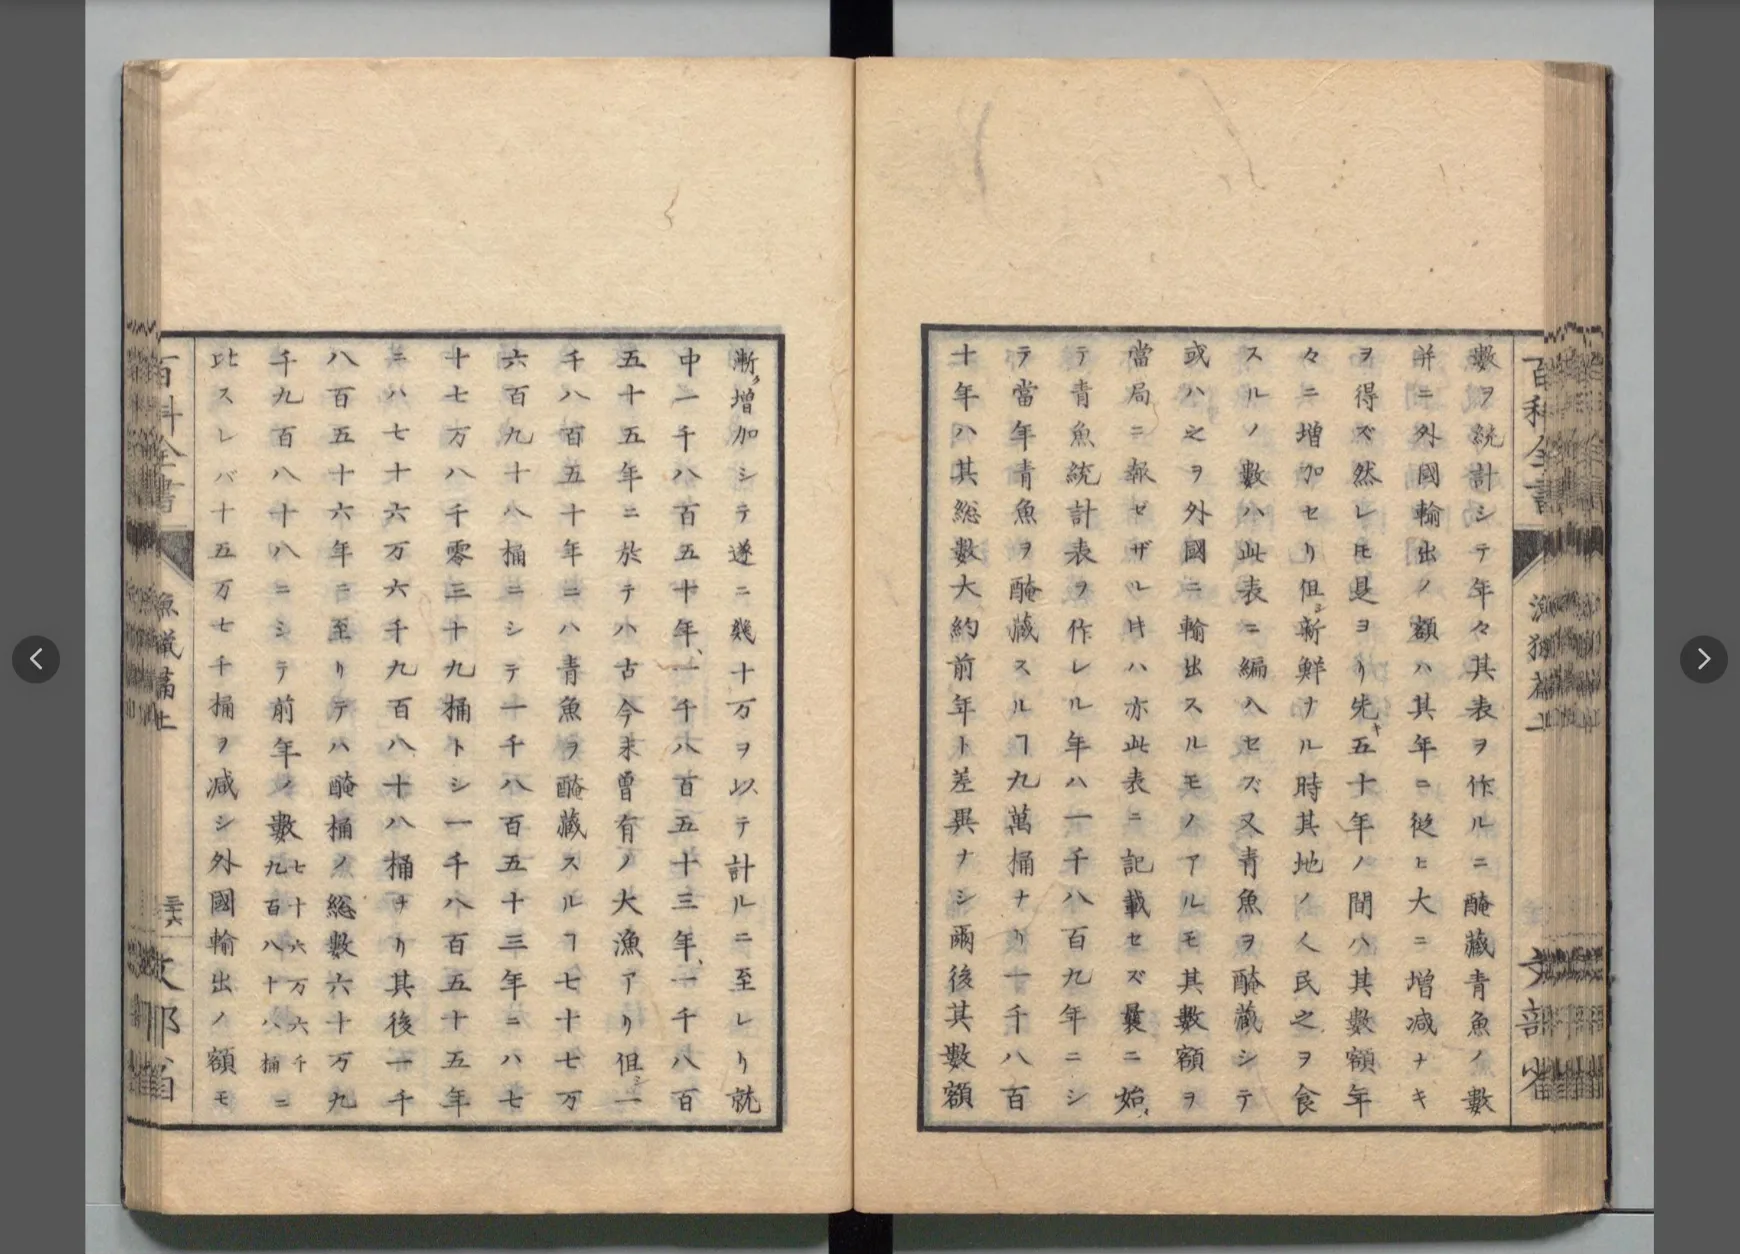 百科全書 漁猟篇上 文部省
數ヲ統計シテ年々其表ヲ作ルニ醃藏青魚ノ數
并ニ外國輸出ノ額ハ其年ニ從ヒ大ニ增減ナキ
ヲ得ズ然レ𪜈是ヨリ先キ五十年ノ間ハ其數額年
々ニ增加セリ但シ新鮮ナル時其地ノ人民之ヲ食
スルノ數ハ此表ニ編入セズ又青魚ヲ醃藏シテ
或ハ之ヲ外國ニ輸出スルモノアルモ其數額ヲ
當局ニ報ゼザレ𪜈ハ亦此表ニ記載セズ曩ニ始メ
テ青魚統計表ヲ作レル年ハ一千八百九年ニシ
テ當年青魚ヲ醃藏スルヿ九萬桶ナリ一千八百
十年ハ其総數大約前年ト差異ナシ爾後其數額
漸ク增加シテ遂ニ幾十万ヲ以テ計ルニ至レリ就
中一千八百五十年、一千八百五十三年、一千八百
五十五年ニ於テハ古今未曾有ノ大漁アリ但シ一
千八百五十年ニハ青魚ヲ醃藏スルヿ七十七万
六百九十八桶ニシテ一千八百五十三年ニハ七
十七万八千零三十九桶トシ一千八百五十五年
ニハ七十六万六千九百八十八桶ナリ其後一千
八百五十六年ニ至リテハ醃桶ノ総數六十万九
千九百八十八ニシテ前年ノ數七十六万六千九百八十八桶ニ
比スレバ十五万七千桶ヲ減シ外國輸出ノ額モ
百科全書 漁猟篇上 三十六 文部省